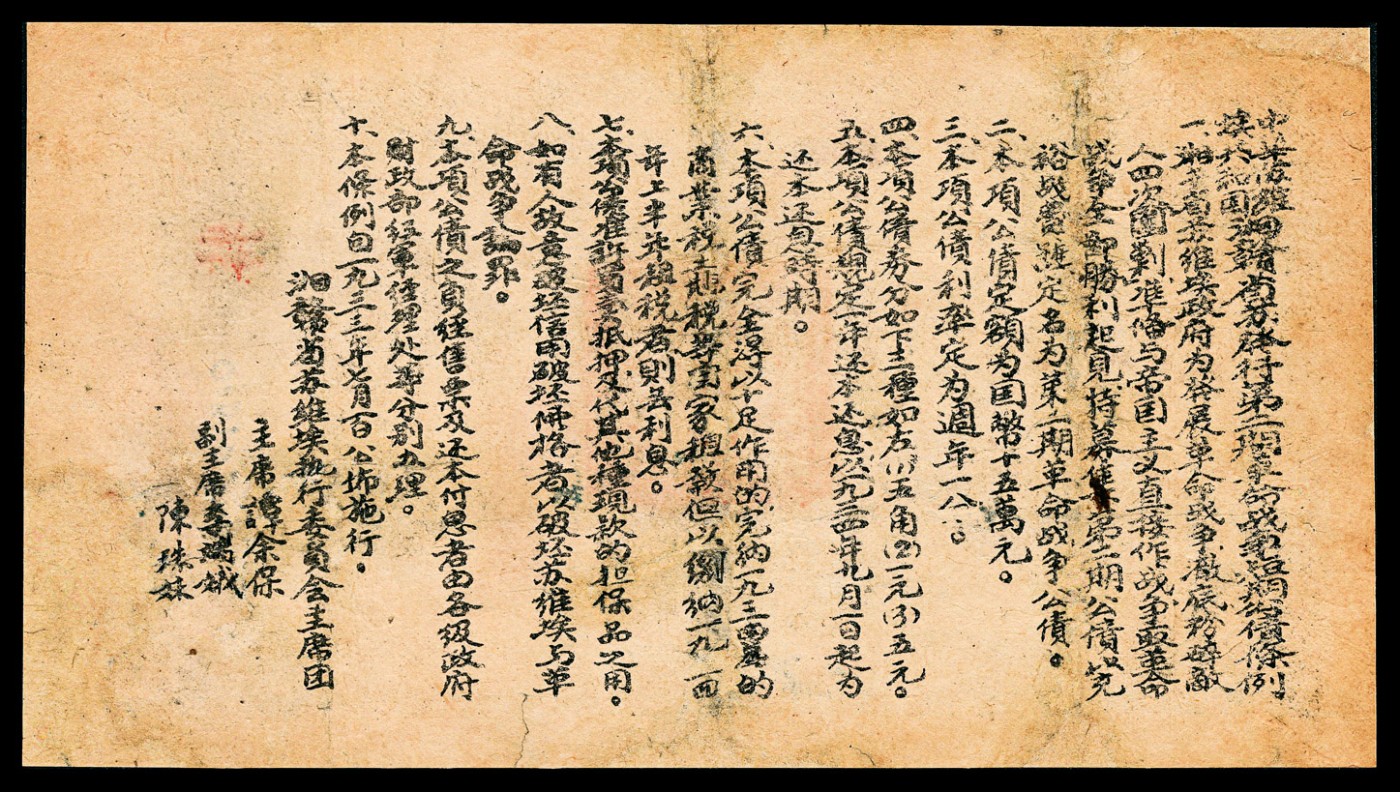 中华苏维埃共和国湘赣省苏发行第二期革命战争短期公债條例
一、湘赣省苏维埃政府为發展革命战争徹底粉碎敵
人四次圍剿準俻与帝囯主义直接作战争取革命
战争全部勝利起見特募集第二期公債以充
裕战費 定名为第二期革命战争公債。
二、本項公債定額为囯幣十五萬元。
三、本項公債利率定为週年一八。
四、本項公債券分如下三種如左(1)五角(2)一元(3)五元。
五、本項公債規定一年还本还息以一九三四年九月一日起为
还本还息時期。
六、本項公債完全得以十足作用的完納一九三四年的
商業税土地税等囯家租税但以繳納一九三四
年上半年租税者则無利息。
七、本項公債准許買賣抵押及代其他種現款的担保品之用。
八、如有人故意破坏信用破坏価格者以破坏苏维埃与革
命战争論罪。
九、本項公債之負经售票及还本付息者由各级政府
財政部红軍经理处等分别办理。
十、本條例自一九三三年七月一日公佈施行。
湘赣省苏维埃执行委員会主席团
主席譚余保
副主席李端娥
陳珠妹